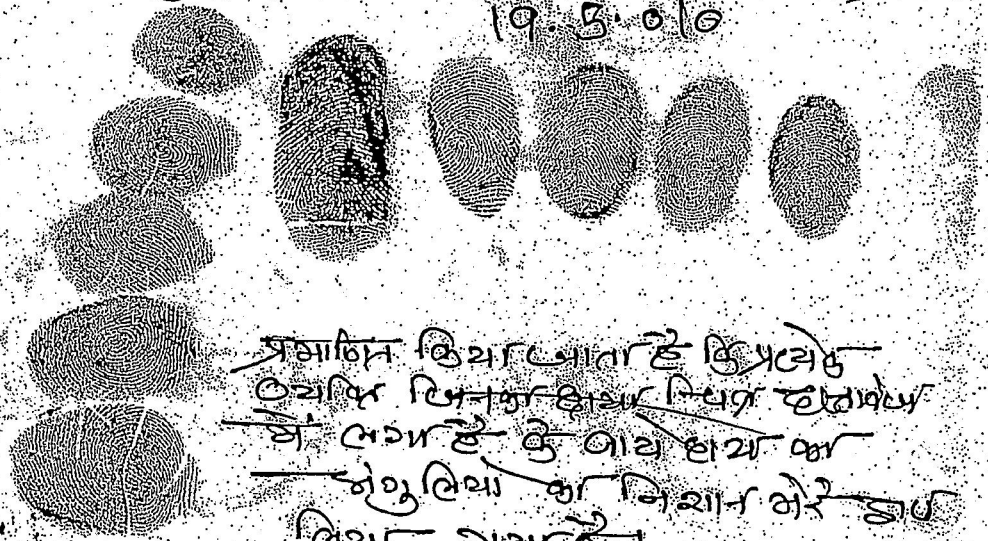 19.5.010
प्रमाणित किया जाता है कि प्रत्येक
व्यक्ति जिनका छाया चित्र दस्तावेज
में लगा है के बाय हाथ का
अंगुलियो का निशान मेरे द्वारा
लिया गया है।